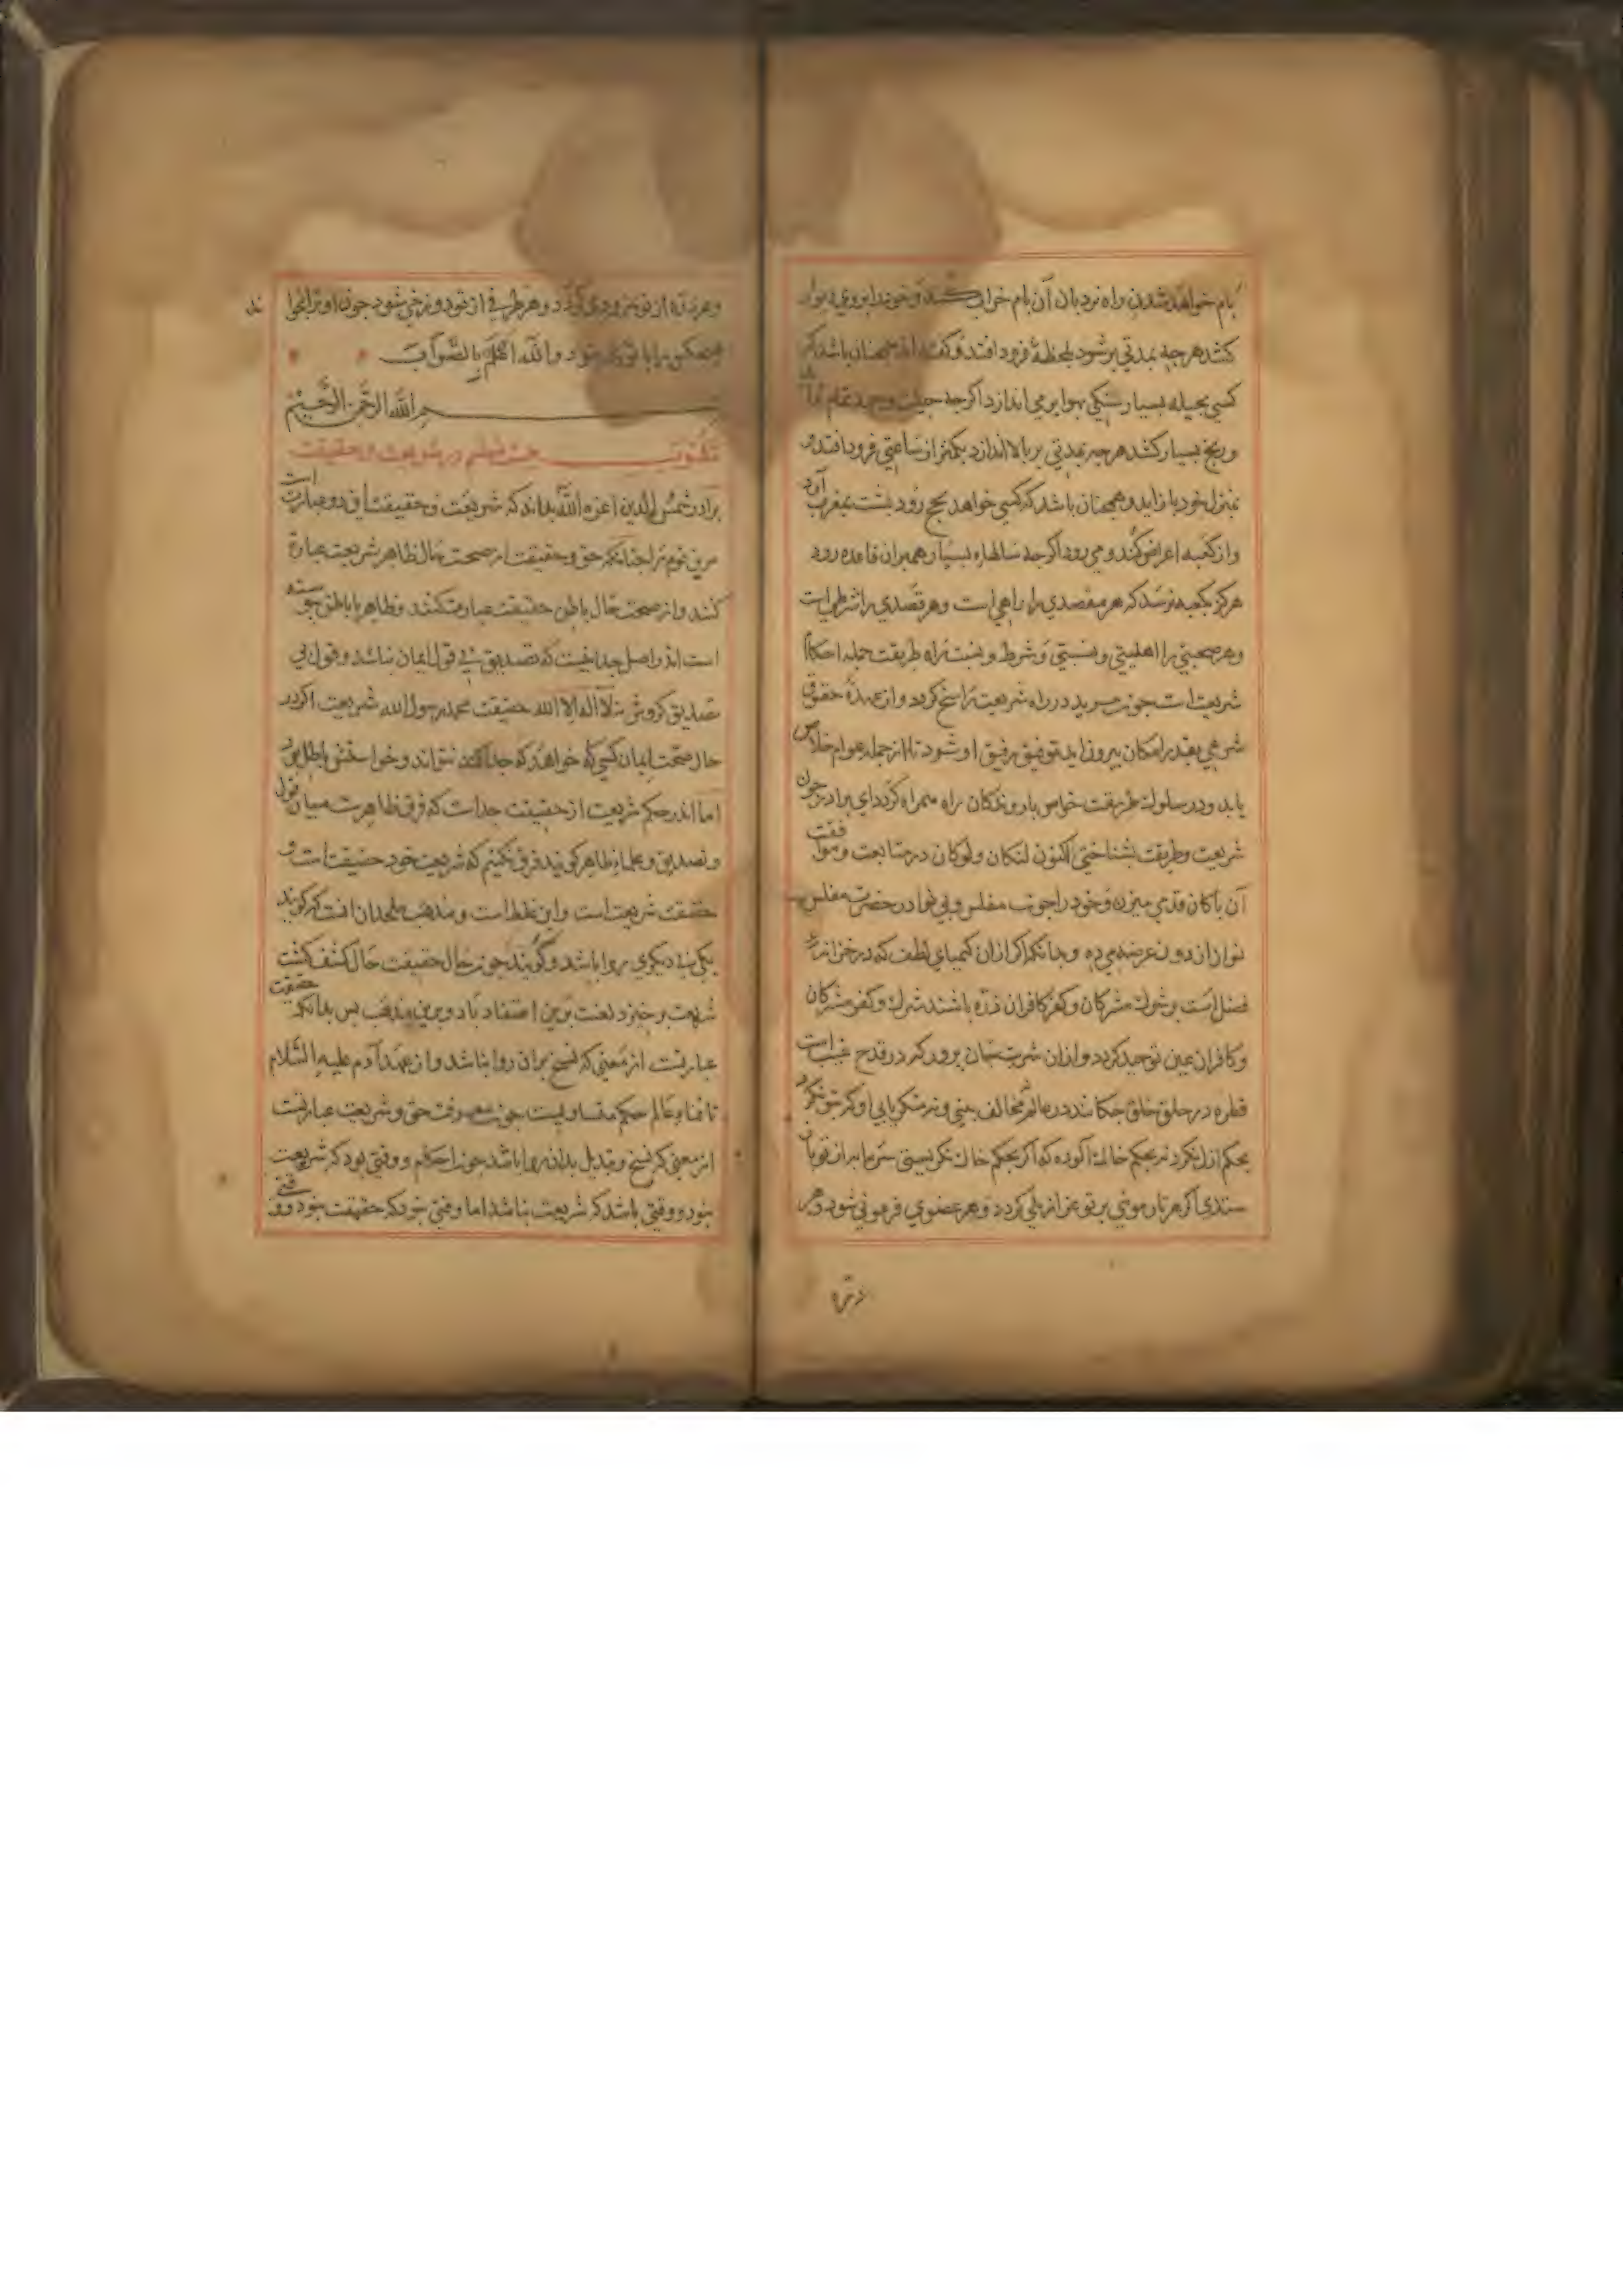 بام خواهد شدن و راه نردبان آن بام خراب کند و خود را بروی دیوار
کشد هرچه بمدتی بر شود بلحظهٔ فرود افتد و گفته اند همچنان باشد که
کسی بحیله بسیار سنگی بهوا بر می اندازد اگرچه حیلت و جهد تمام
و رنج بسیار کشد هرچه بمدتی بر بالا اندازد بکمتر از ساعتی فرود افتد و
بمنزل خود باز آید و همچنان باشد که کسی خواهد بحج رود پشت بمغرب آرد
و از کعبه اعراض کند و می رود اگرچه سالهاء بسیار همبران قاعده رود
هرگز بکعبه نرسد که هر مقصدی را راهی است و هر قصدی را شرطی است
و هر صحبتی را اهلیتی و نسبتی و شرط و نسبت راه طریقت جمله احکام
شریعت است چون مرید در راه شریعت راسخ گردد و از عهدهٔ حقوق
شرعی بقدر امکان بیرون آید توفیق رفیق او شود تا از جمله عوام خلاص
یابد و در سلوک طریقت خواص با روندگان راه همراه گردد ای برادر چون
شریعت و طریقت بشناختی اکنون لنکان و لوکان در متابعت و موافقت
آن پاکان قدمی میزن و خود را چون مفلس و بی نوا در حضرت مفلس
نواز از دون عرضه می ده و چنانکه اگر از آن کیمیای لطف که در خزانه
فضل است بر شرک مشرکان و کفر کافران ذره باشند شرک و کفر مشرکان
و کافران عین توحید گردد و از آن شربت جان پرور که در قدح غیب است
قطره در حلق خلق چکانند در عالم نه مخالف بینی و نه منکر یابی او که بتو نگرد
بحکم ازل نگرد نه بحکم خاک آلوده که اگر بحکم خاک نگریستی
ستدی اگر هر تار موئی بر تو عزازیلی گردد و هر عضوی فرعونی شود و هر
و هر ذره از تو نمرودی گردد و هر طرفی از تو دوزخی شود چون او ترا
هیچکس را با تو کاری نبود والله اعلم بالصواب
بسم الله الرحمن الرحیم
مکتوب بیست و ششم در شریعت و حقیقت
برادر شمس الدین اعزه الله بداند که شریعت و حقیقت این دو عبارت است
مرین قوم را چنانکه حق و حقیقت از صحت حال ظاهر شریعت عبارة
کنند و از صحت حال باطن حقیقت عبارت کنند و ظاهر با باطن پیوسته
است اندر اصل جدا نیست که تصدیق بی قول ایمان نباشد و قول بی
تصدیق گروش نه لا اله الا الله حقیقت محمد رسول الله شریعت اگر در
حال صحت ایمان کسی که خواهد که جدا کند نتواند و خواستش باطل بود
اما اندر حکم شریعت از حقیقت جداست که فرق ظاهرست میان قول
و تصدیق و علماء ظاهر گویند فرق نکنیم که شریعت خود حقیقت است و
حقیقت شریعت است و این غلط است و مذهب ملحدان آنست که گویند
یکی بی دیگری روا باشد و گویند چون حال حقیقت حال کشف گشت
شریعت برخیزد لعنت برین اعتقاد باد و برین مذهب پس بدانکه حقیقت
عبارتست از معنی که نسخ بر آن روا نباشد و از عهد آدم علیه السلام
تا فناء عالم حکم متساویست چون معرفت حق و شریعت عبارتست
از معنی که نسخ و تبدیل بدان روا باشد چون احکام و وقتی بود که شریعت
نبود و وقتی باشد که شریعت نباشد اما وقتی نبود که حقیقت نبود و وقتی